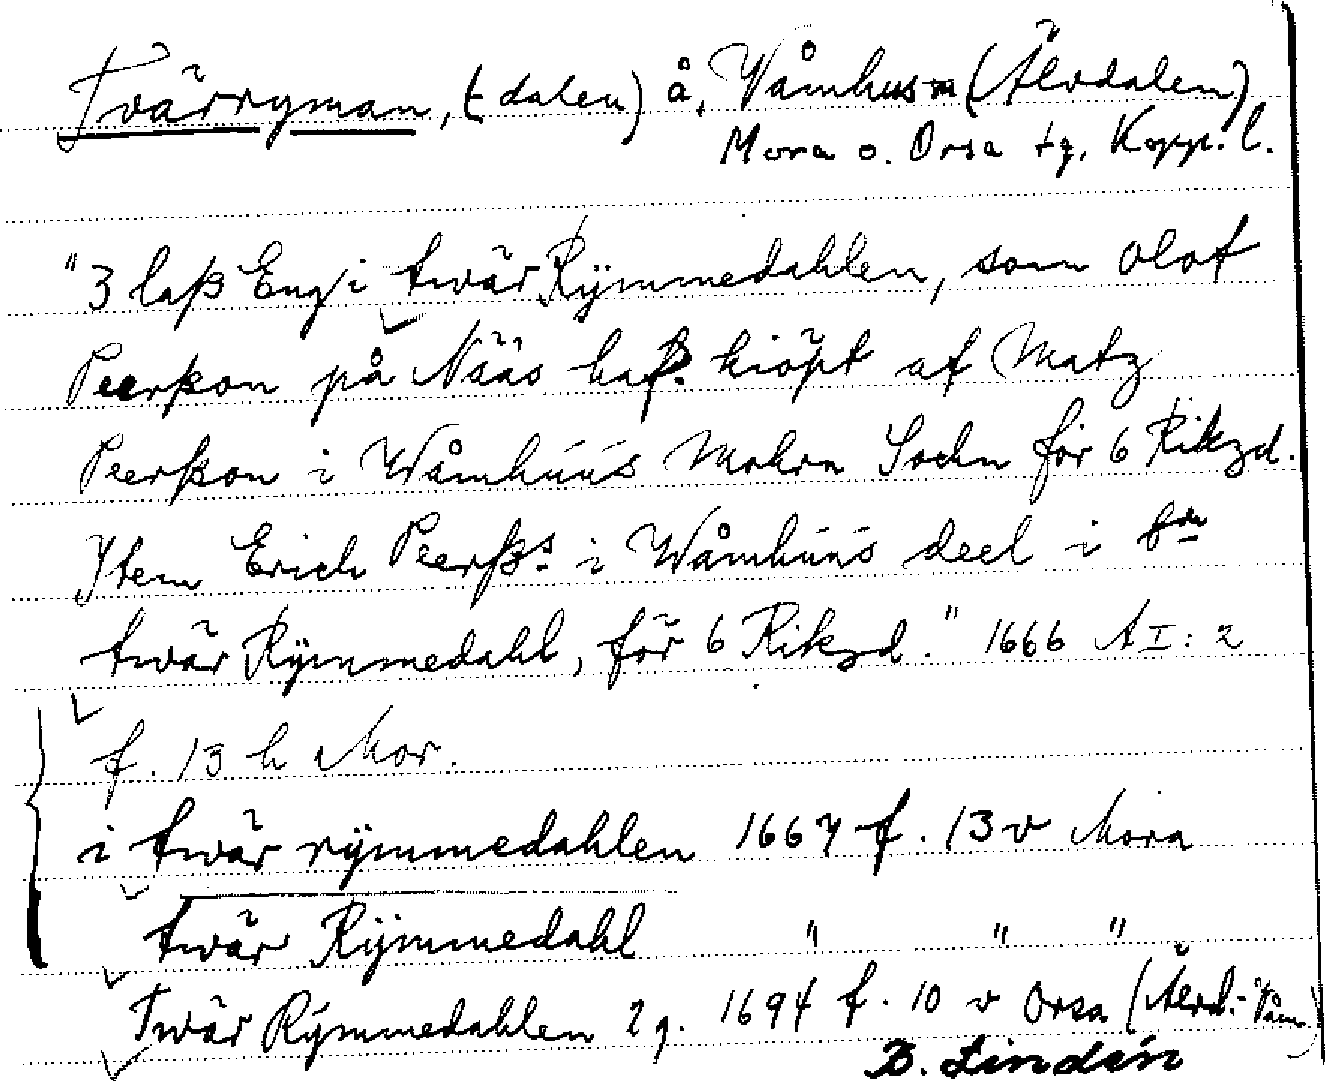 Tvärryman, (-dalen) å, Våmhus sn (Älvdalen)
Mora o. Orsa tg, Kopp. l.
"3 laß Eng i twär Rÿmmedahlen, som Olof
Peerßon på Nääs haf. kiöpt af Matz
Peerßon i Wåmhúús Mohra Sochn för 6 Rikzd.
Item Erich Peerßs. i Wåmhúús deel i bde
twär Rÿmmedahl, för 6 Rikzd." 1666 AI: 2
f. 13 h Mor.
i twär rÿmmedahlen 1667 f. 13 v Mora
twär Rÿmmedahl " " "
Twär Rÿmmedahlen 2 g. 1694 f. 10 v Orsa (Älvd.- Våm.)
B. Lindén